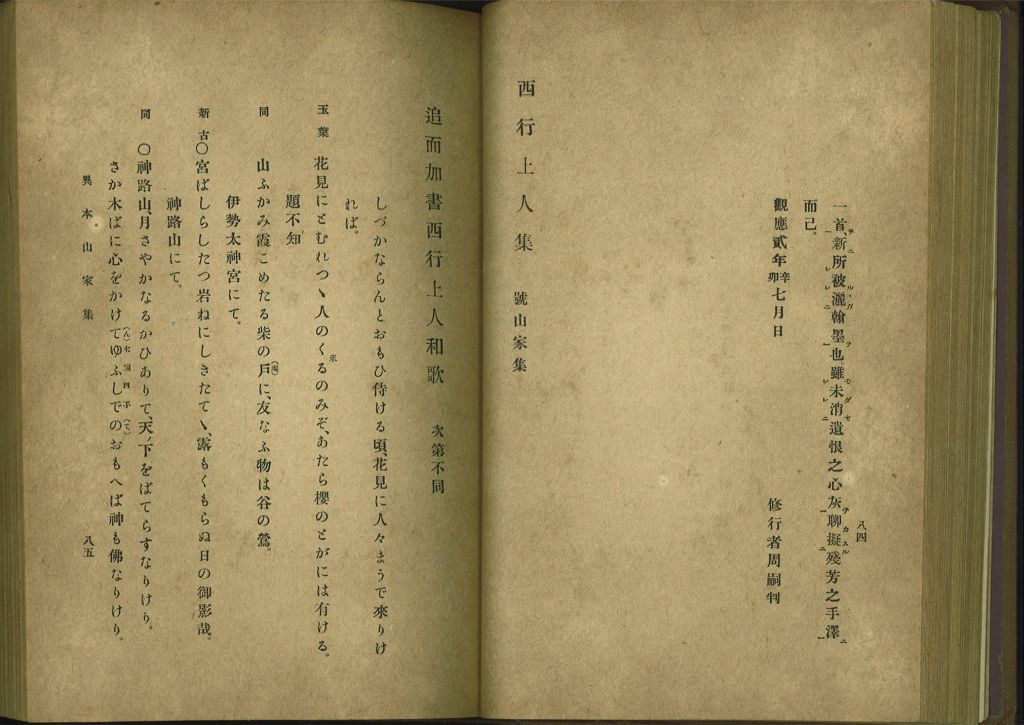 八四
一首、新所被灑翰墨也。雖未消遺恨之心灰、聊擬殘芳之手澤
而已。
觀應貳年辛卯七月日
修行者周嗣判
西行上人集 號山家集
追而加書西行上人和歌 次第不同
しづかならんとおもひ侍ける頃、花見に人々まうで來りけ
れば。
玉葉 花見にとむれつヽ人のくるのみぞ、あたら櫻のとがには有ける。
題不知
同 山ふかみ霞こめたる柴の戸に、友なふ物は谷の鶯。
伊勢太神宮にて。
新古〇宮ばしらしたつ岩ねにしきたてヽ、露もくもらぬ日の御影哉。
神路山にて。
同 〇神路山、月さやかなるかひありて、天ノ下をばてらすなりけり。
さか木ばに心をかけてゆふしでのおもへば神も佛なりけり。
異本山家集
八五